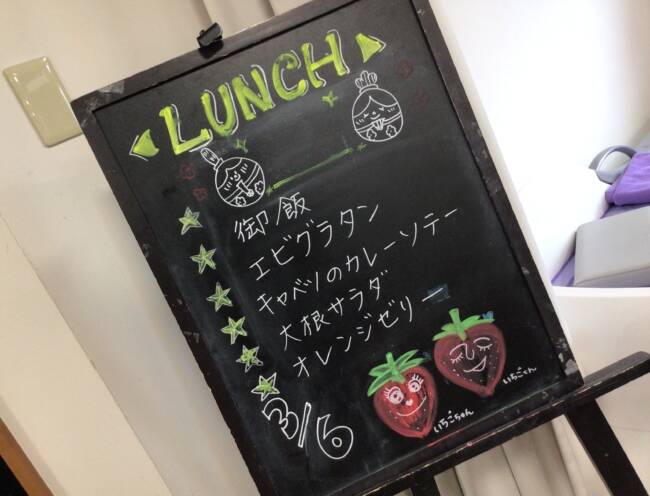 LUNCH
御飯
エビグラタン
キャベツのカレーソテー
大根サラダ
オレンジゼリー
3/6
いちごちゃん
いちごくん